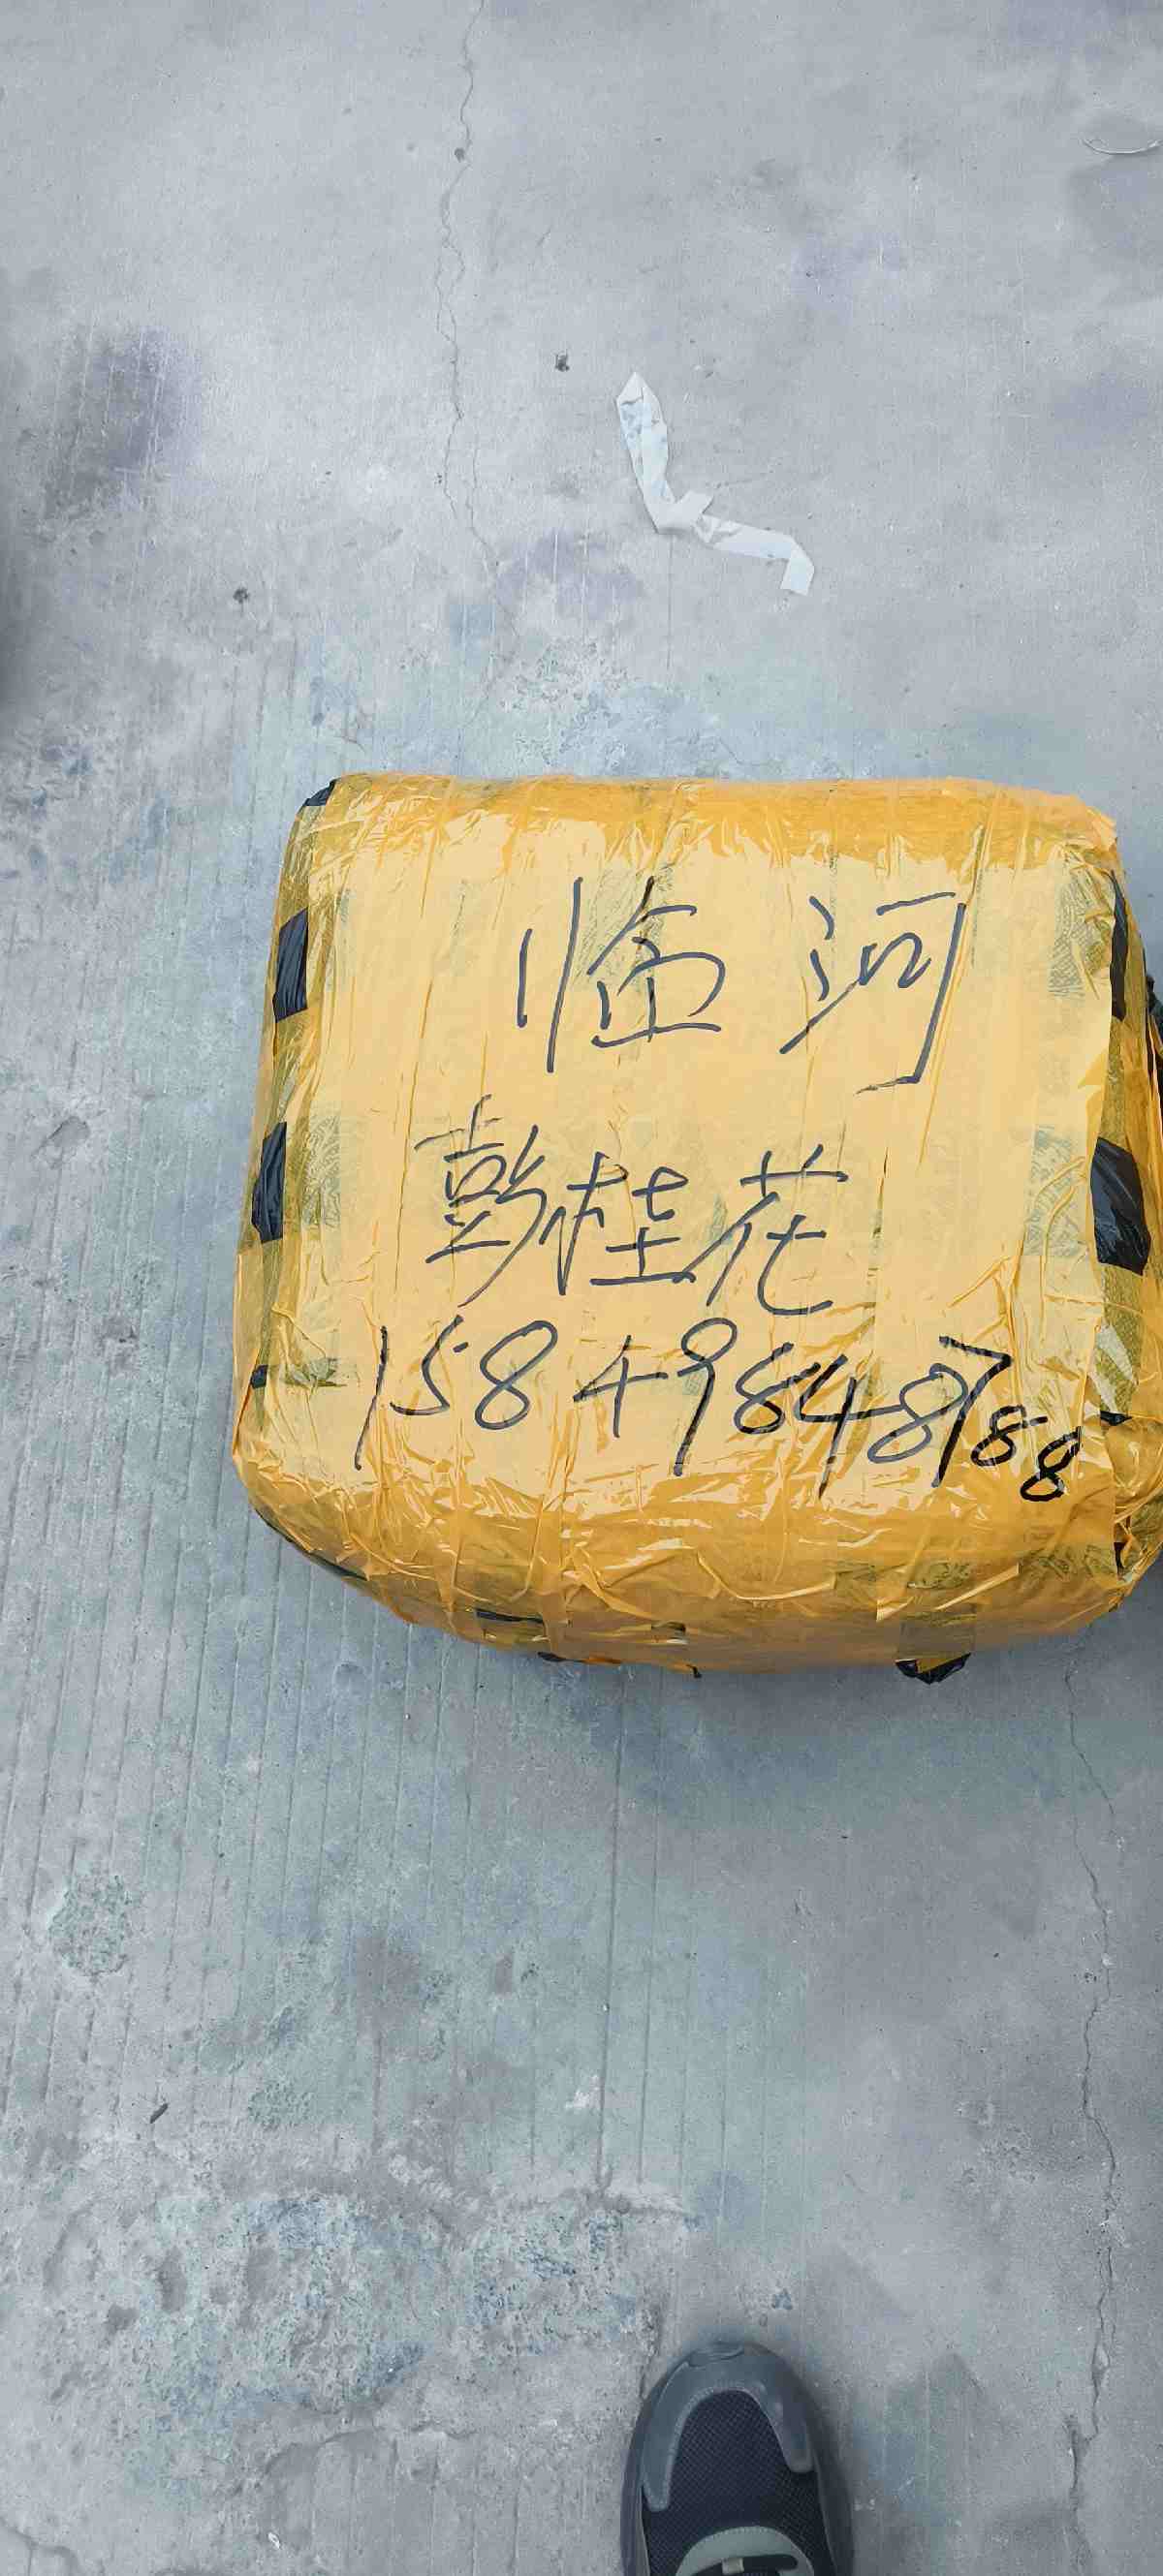 临河
彭桂花
15849848788